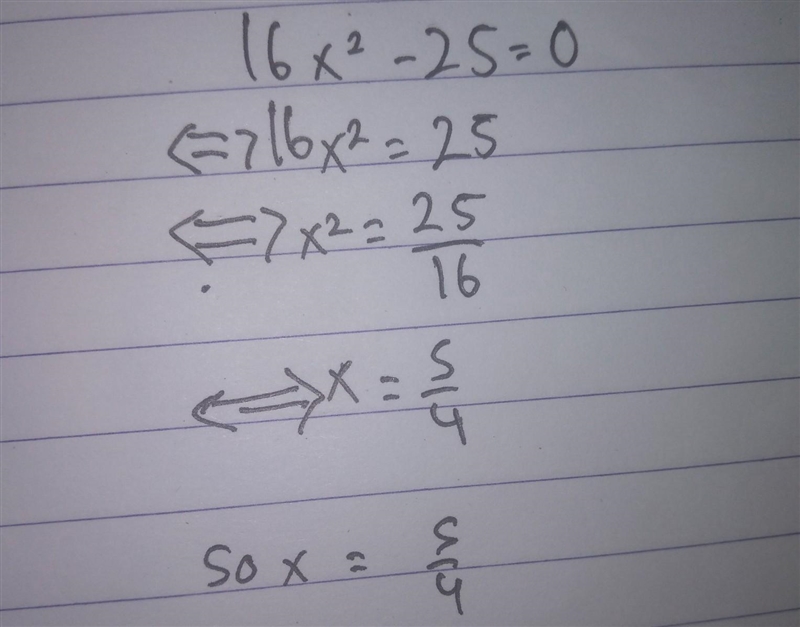 16x² - 25 = 0
⇔ 16x² = 25
⇔ x² = 25/16
⇔ x = 5/4
so x = 5/4